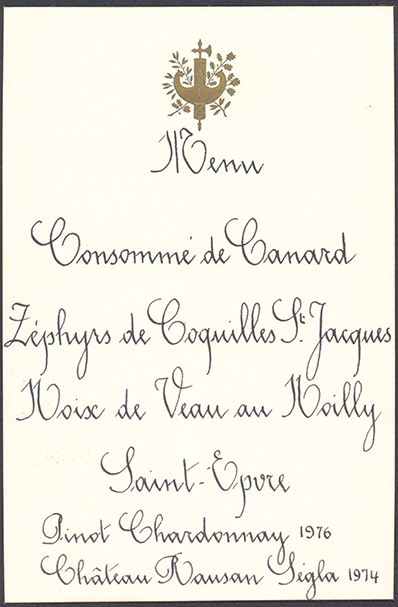 Menu
Consommé de Canard
Zéphyrs de Coquilles St. Jacques
Noix de Veau au Noilly
Saint-Epvre
Pinot Chardonnay 1976
Château Rausan Ségla 1974